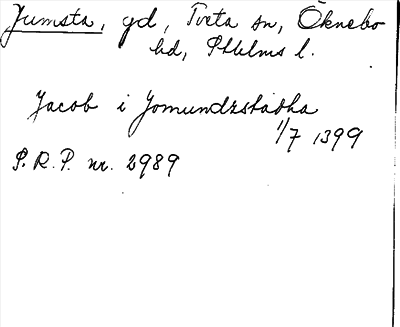 Jumsta, gd, Tveta sn, Öknebo
hd, Sthlms l.
Jacob i Jomundzstadha
1/7 1399
S.R.P. nr. 2989